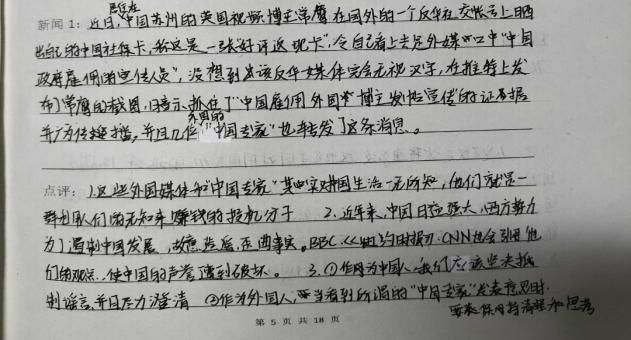 居住在
新闻 1: 近日,中国苏州的英国视频博主常鹰在国外的一个反华社交帐号上晒
出自己的中国社保卡,称这是一张"好评返现卡",令自己看上去是外媒口中"中国
政府雇佣的宣传员",没想到该反华媒体完全无视汉字,在推特上发
布了常鹰的截图,暗示抓住了"中国雇佣外国博主发布宣传"的证据
并大肆传播,并且几位"中国专家"也转发了这条消息。
外国的
点评: 1.这些外国媒体和"中国专家"其实对中国生活一无所知,他们就是一
群利用人们的无知来赚钱的投机分子 2.近年来,中国日益强大,西方势力
为了遏制中国发展,故意歪曲事实。BBC《纽约时报》CNN也会引用他
们的观点,使中国的声誉遭到破坏。 3.①作为中国人,我们应该坚决抵
制谣言,并且尽力澄清 ②作为外国人,当看到所谓的"中国专家"发表意见时
要保持清醒和思考
第 5 页 共 18 页